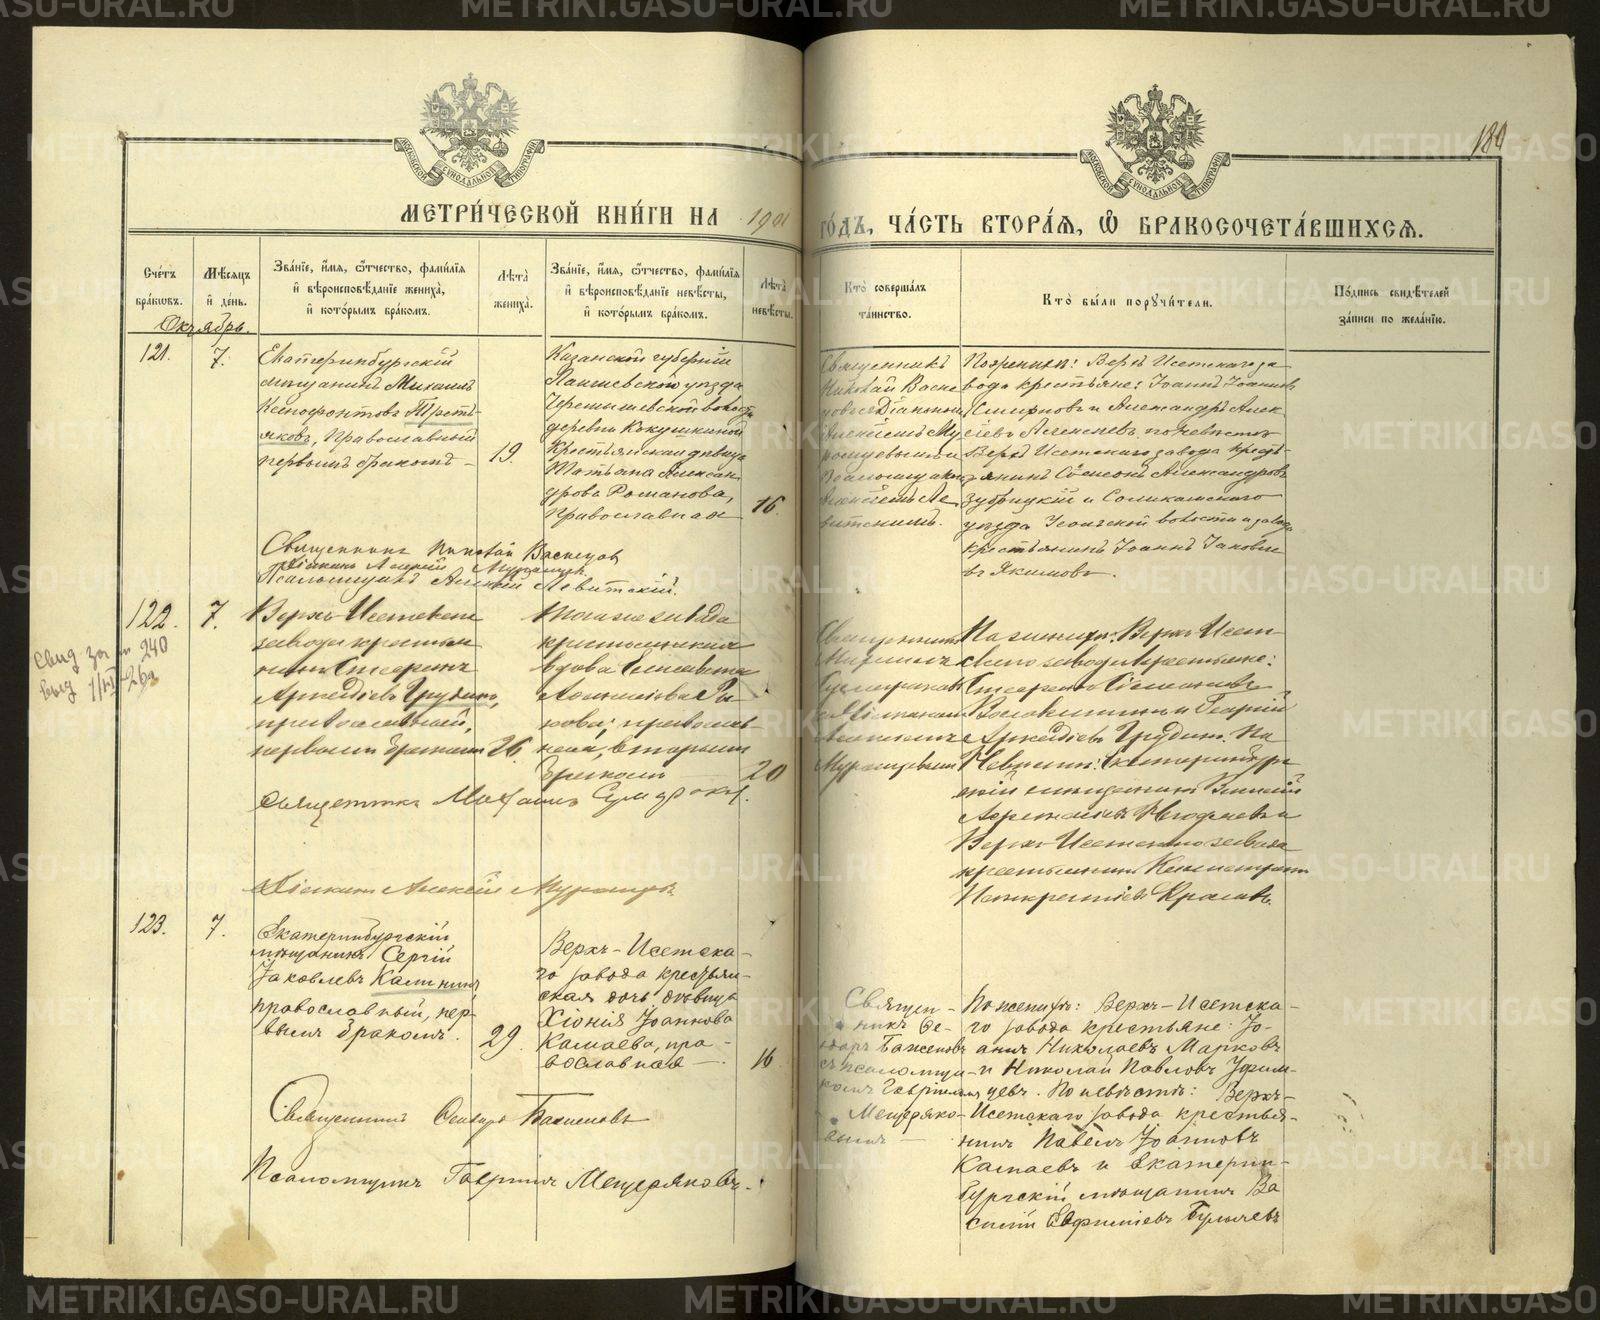 METRIKI.GASO-URAL.RU
184
МОСКОВСКОЙ СУНОДАЛЬНОЙ ТИПОГРАФІИ
МОСКОВСКОЙ СУНОДАЛЬНОЙ ТИПОГРАФІИ
МЕТРИ́ЧЕСКОЙ КНИ́ГИ НА 1901 ГО́ДЪ, ЧА́СТЬ ВТОРА́Я, Ѽ БРАКОСОЧЕТА́ВШИХСЯ.
Сче́тъ бра́кωвъ.
Мѣ́сяцъ и҆ де́нь.
Зва́нїе, и҆́мя, ѻ҆́тчество, фами́лїя
и҆ вѣроисповѣ́данїе жениха̀,
и҆ кото́рымъ бра́комъ.
Лѣта̀ жениха̀.
Зва́нїе, и҆́мя, ѻ҆́тчество, фами́лїя
и҆ вѣроисповѣ́данїе невѣ́сты,
и҆ кото́рымъ бра́комъ.
Лѣта̀ невѣ́сты.
Кто̀ соверша́лъ та́инство.
Кто̀ бы́ли поручи́тели.
По́дпись свидѣ́телей
за́писи по жела́нїю.
Октябрь.
121.
7.
Екатеринбургскій
мѣщанинъ Михаилъ
Ксенофонтовъ Треть-
яковъ, православный
первымъ бракомъ
19.
Казанской губерніи
Лаишевской уѣзда
Черемышевской волости
деревни Кокушкиной
Крестьянская дѣвица
Татьяна Алексан-
дрова Романова,
Православная
16.
Священникъ
Николай Васне
цовъ съ Діакономъ
Алексіемъ Му
ромцевымъ и
Псаломщикомъ
Алексіемъ Ле
витскимъ.
По женихѣ: Верхъ Исетскаго за
вода крестьяне: Іоаннъ Іоанновъ
Смирновъ и Александръ Алек
сіевъ Алексѣевъ. по невѣстѣ
Верхъ Исетскаго завода кресть
янинъ Симеонъ Александровъ
Зубрицкій и Соликамскаго
уѣзда волости и завода
крестьянинъ Іоаннъ Іаковле
въ Якимовъ.
Священникъ Николай Васнецов
Діаконъ Алексій Муромцев
Псаломщикъ Алексій Левитскій.
122.
7.
Свид за № 240
выд
Верхъ-Исетскаго
завода крестья
нинъ
Аркадіевъ Грудинъ,
православный,
первымъ бракомъ
26.
того же завода
крестьянская
вдова Елисавета
православ
ная, вторымъ
бракомъ
20
Священникъ
Михаилъ
съ Діакономъ
Алексіемъ
Муромцевымъ
По женихѣ: Верхъ Исет
скаго завода крестьяне:
и Георгій
Аркадіевъ Грудинъ. По
Невѣстѣ: Екатеринбург
скій мѣщанинъ
Верхъ-Исетскаго завода
крестьянинъ
Священникъ Михаилъ
Діаконъ Алексій Муромцевъ
123.
7.
Екатеринбургскій
мѣщанинъ Сергій
Іаковлевъ Калининъ,
православный, пер-
вымъ бракомъ.
29.
Верхъ-Исетска-
го завода крестьян-
ская дочь дѣвица
Хіонія Іоаннова
Камаева, пра-
вославная
16
Священ-
никъ Ѳе-
одоръ Баженовъ
съ псаломщи-
комъ Гавріиломъ
Мещеряко-
вымъ
По женихѣ: Верхъ-Исетска-
го завода крестьяне: Іо-
аннъ Николаевъ Марковъ
и Николай Павловъ Уфим-
цевъ. По невѣстѣ: Верхъ-
Исетскаго завода крестья-
нинъ Павелъ Іоанновъ
Камаевъ и Екатерин-
бургскій мѣщанинъ Ва
силій Евфиміевъ Булычевъ
Священникъ Ѳеодоръ Баженовъ
Псаломщикъ Гавріилъ Мещеряковъ.